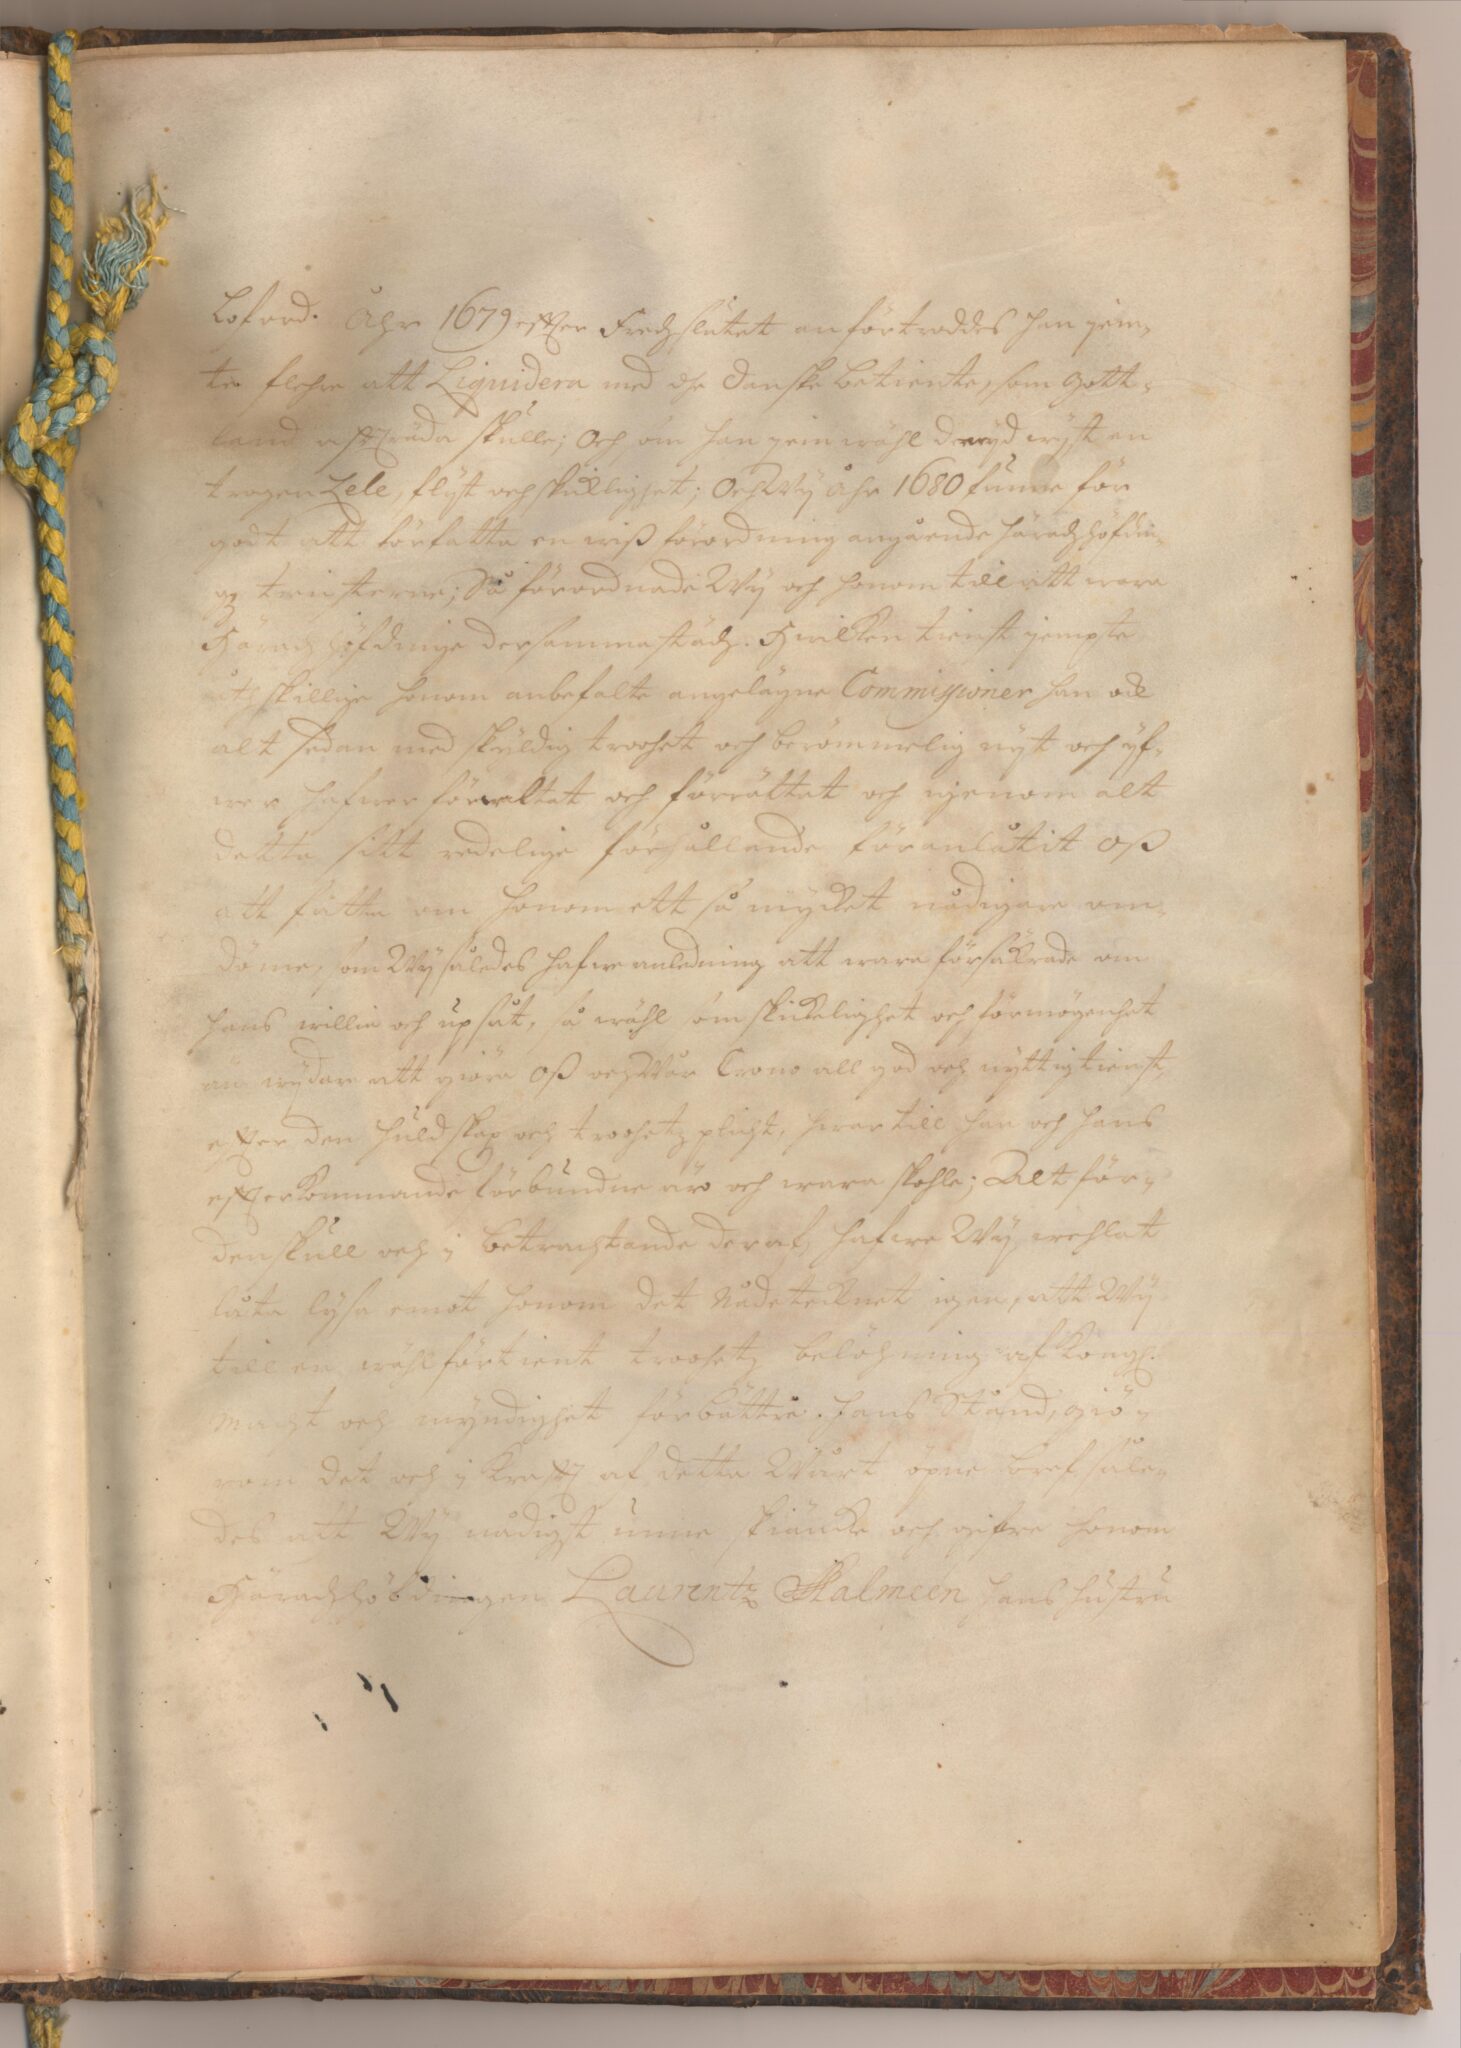 Loford. Åhr 1679 effter Fredzslutet anförtroddes han jem-
te flehre att Liquidera med the Danske betiente, som Gott-
land affträda skulle; Och om han jemwähl derwyd wyst en
trogen Zele, flyt och skickligheet; Och Wy Åhr 1680 funne för
godt att författa en wiß förordning angående Häradzhöfdin-
ge tiensterne; Så förordnade Wy och honom till att wara
Häradzhöfdinge dersammastädz. Hwilken tienst jempte
åthskillige honom anbefalte angelägne Commissioner han alt
alt sedan med skyldig trooheet och berömmelig nyt och yf-
wer hafwer förwaltat och förrättat och igenom alt
detta sitt redelige förhållande föranlåtit Oß
att fatta om honom ett så mycket nådigare om-
döme, som Wy således hafwe anledning att wara försäkrade om
hans willie och upsåt, så wähl som skickeligheet och förmögenheet
än wydare att giöra Oß och Wår Crono all god och nyttig tienst,
effter den huldskap och trooheetz plicht, hwartill han och hans
effterkommande förbundne äro och wara skohle; Alt för-
denskull och i betrachtande deraf, hafwe Wy wehlat
låta lysa emot honom det Nådetecknet igen, att Wy
till en wählförtient trooheetz belöhning af Kongl.
Macht och myndigheet förbättre hans Stånd, giö-
rom det och i krafft af detta Wårt öpne bref såle-
des att Wy nådigst unne skiäncke och gifwe honom
Häradzhöbdingen Laurentz Skalmeen hans hustru